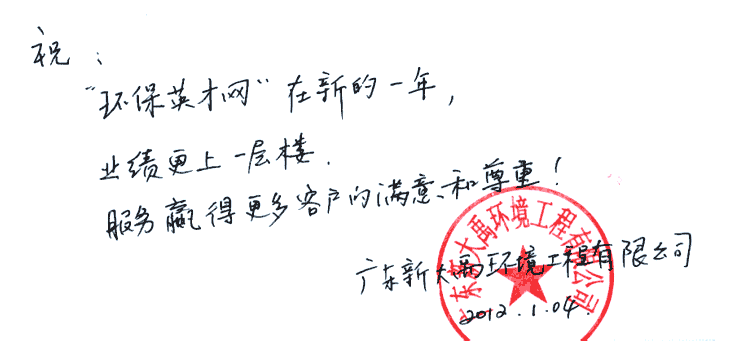 祝：
“环保英才网”在新的一年，
业绩更上一层楼.
服务赢得更多客户的满意和尊重！
广东新大禹环境工程有限公司
2012.1.04.
广东新大禹环境工程有限公司